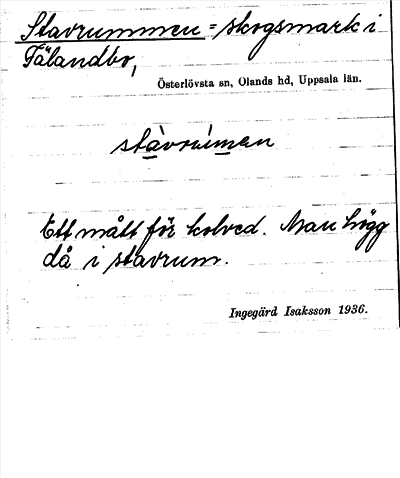 Stavrummen = skogsmark i
Fälandbo,
Österlövsta sn, Olands hd, Uppsala län.
stàvrùmen
Ett mått för kolved. Man högg
då i stavrum.
Ingegärd Isaksson 1936.